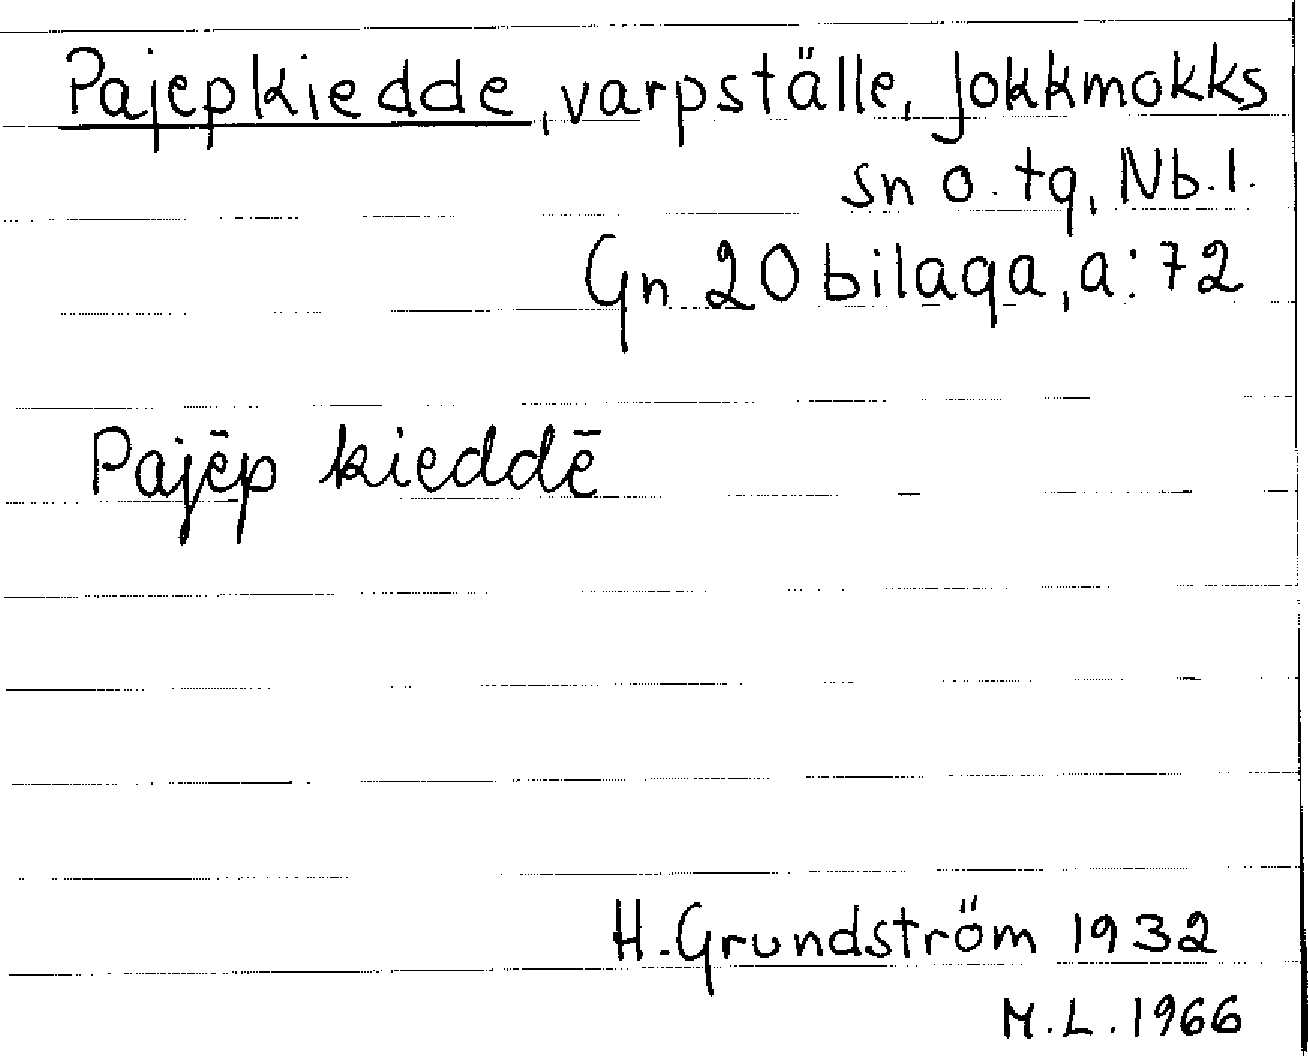 Pajepkiedde, varpställe, Jokkmokks
sn o. tg, Nb. l.
Gn 20 bilaga, a: 72
Pajēp kieddē
H. Grundström 1932
M. L. 1966